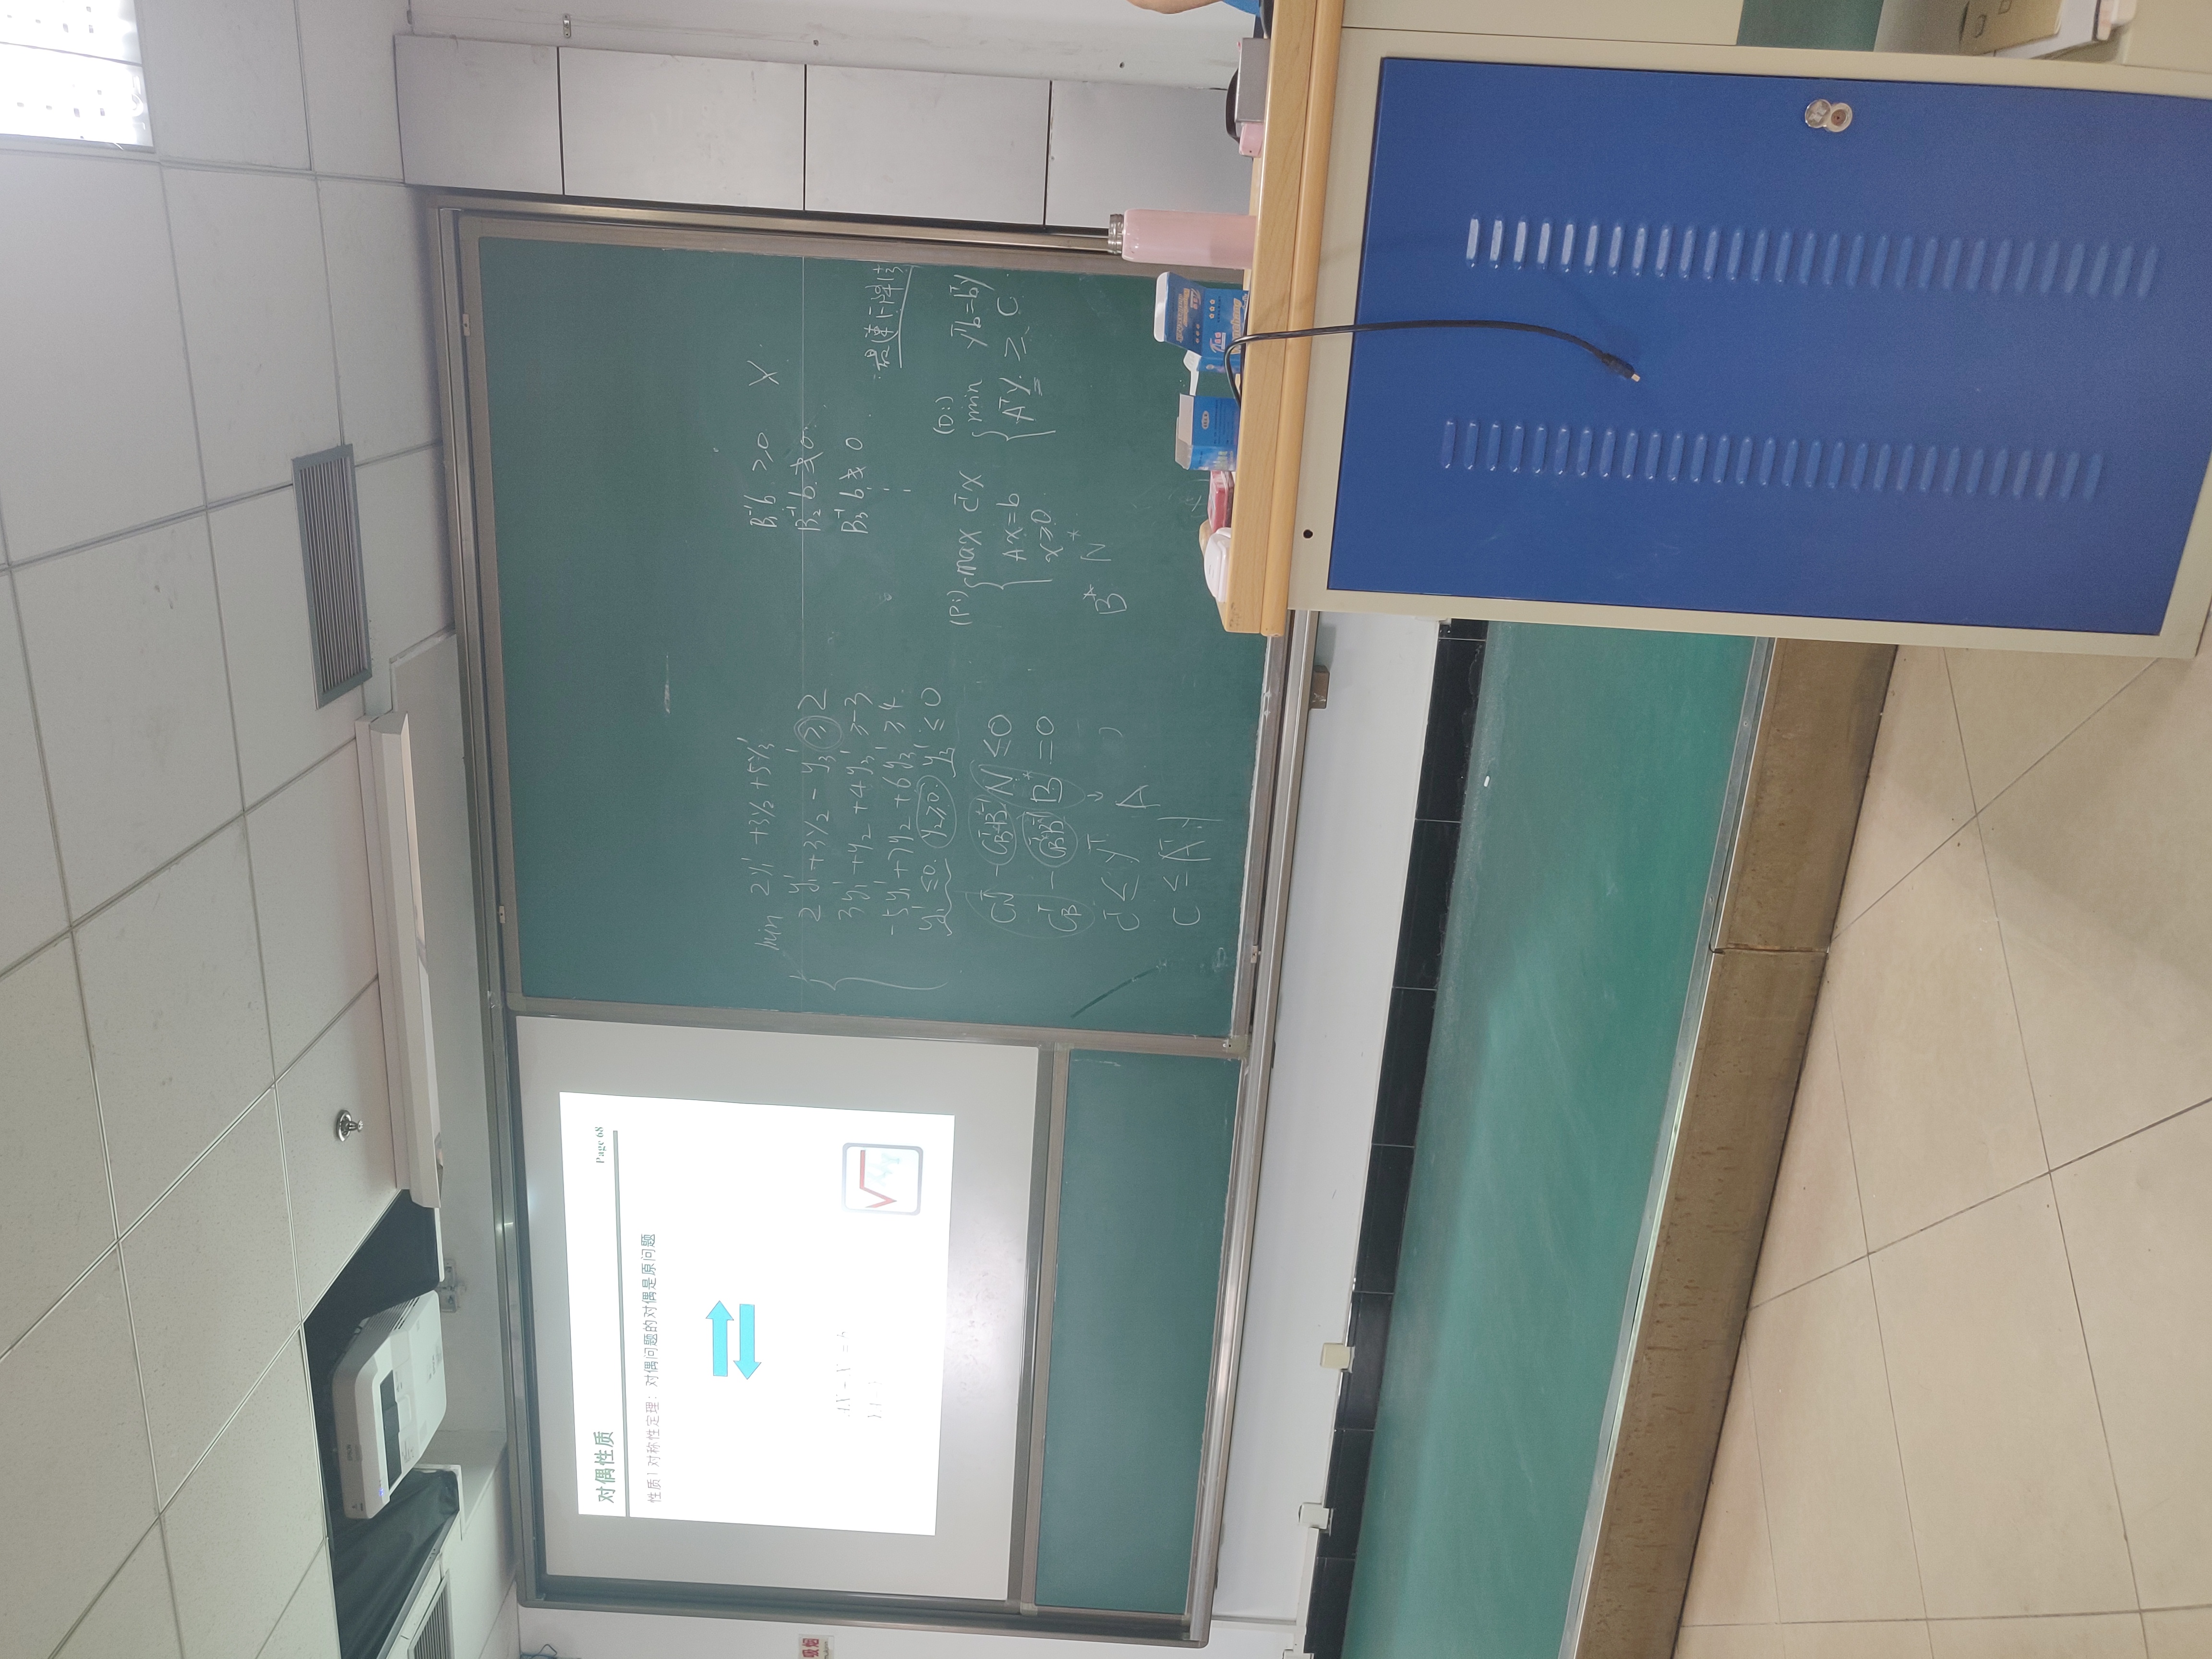 对偶性质
Page 68
性质1 对称性定理：对偶问题的对偶是原问题
吸烟
min 2y₁' + 3y₂ + 5y₃'
2y₁' + 3y₂ - y₃' ≥ 2
3y₁' + y₂ + 4y₃' ≥ -3
-5y₁' + 7y₂ + 6y₃' ≥ 4
y₁' ≤ 0 y₂ ≥ 0 y₃' ≤ 0
C_N^T - C_B^T B^-1 N ≤ 0
C_B^T - C_B^T B^-1 B = 0
C^T ≤ y^T A
C ≤ A^T y
B₁^-1 b ≥ 0 X
B₂^-1 b ≱ 0
B₃^-1 b ≱ 0
最速下降法
(P:) max C^T x
Ax = b
x ≥ 0
(D:) min y^T b = b^T y
A^T y ≥ C
B* N*